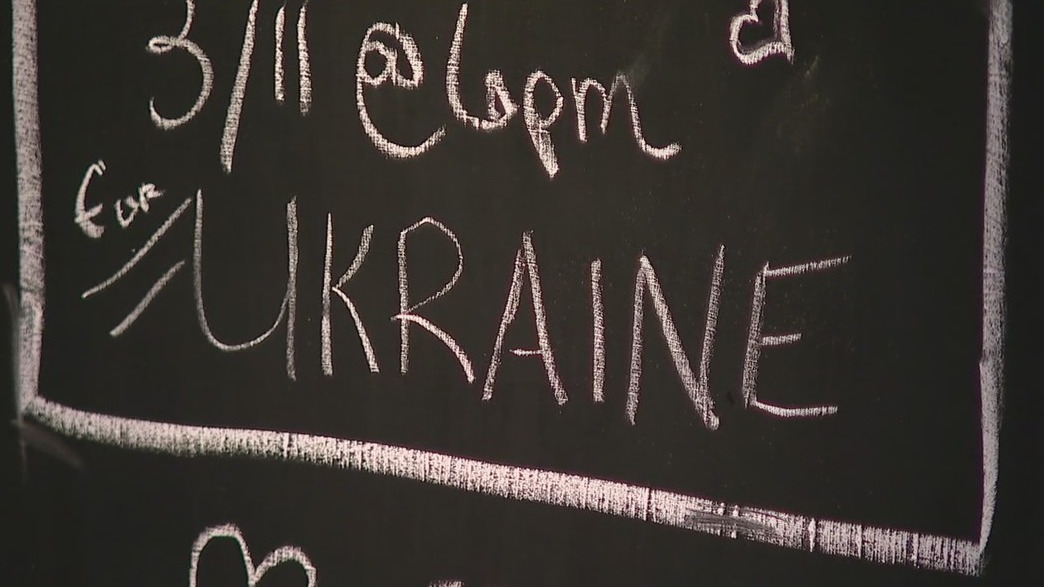 3/11 @ 6pm
for
UKRAINE